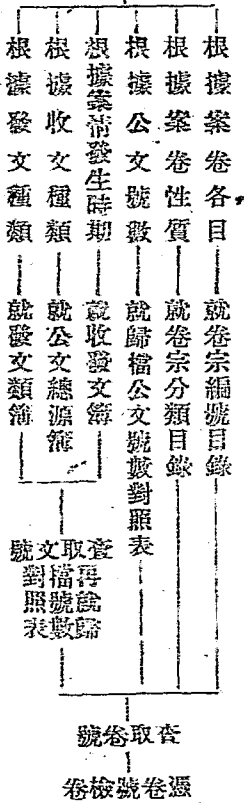 根據案卷各目
就卷宗編號目錄
根據案卷性質
就卷宗分類目錄
根據公文號數
就歸檔公文號數對照表
根據案情發生時期
就收發文簿
根據收文種類
就公文總源簿
根據發文種類
就發文類簿
查取文號
再就歸
檔號數
對照表
查取卷號
憑卷號檢卷